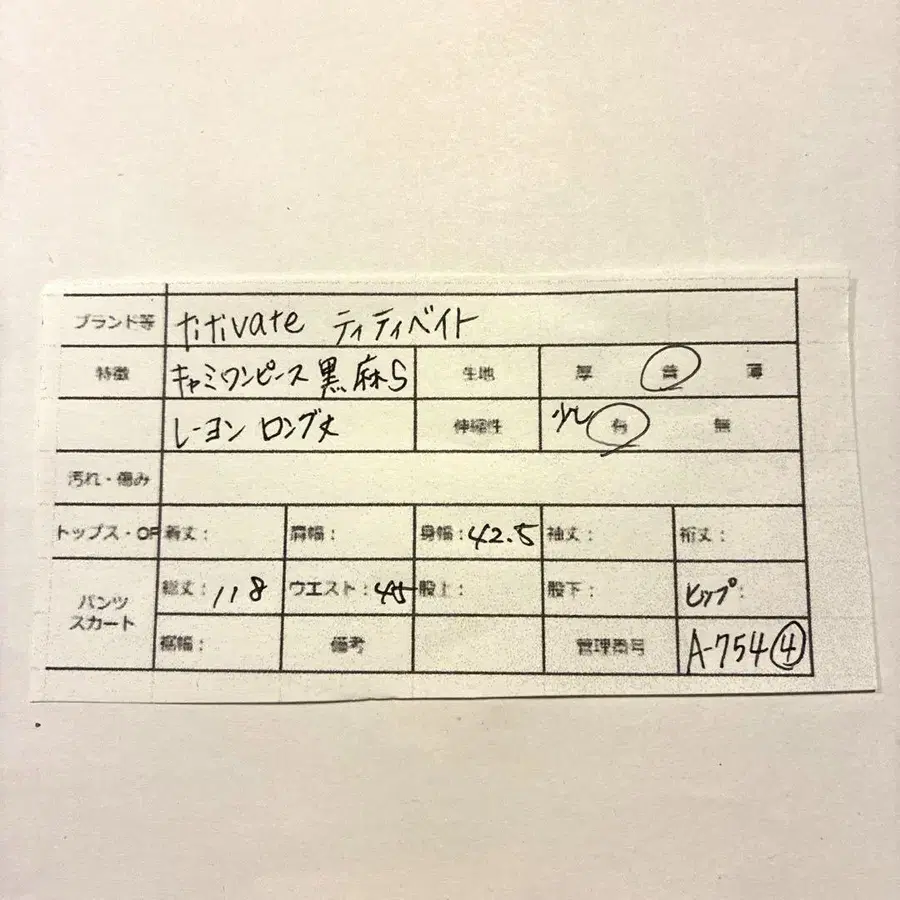 ブランド等 titivate ティティベイト
特徴 キャミワンピース 黒 麻 S 生地 厚 普 薄
レーヨン ロング丈 伸縮性 少し 有 無
汚れ・傷み
トップス・OP 着丈： 肩幅： 身幅：42.5 袖丈： 裄丈：
パンツ スカート 総丈：118 ウエスト：45 股上： 股下： ヒップ：
裾幅： 備考 管理番号 A-754④